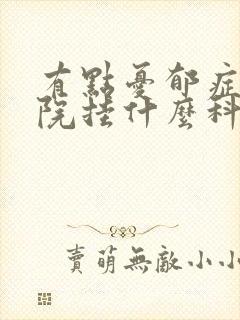 有點憂郁症
院挂什麼科
賣萌無敵小小